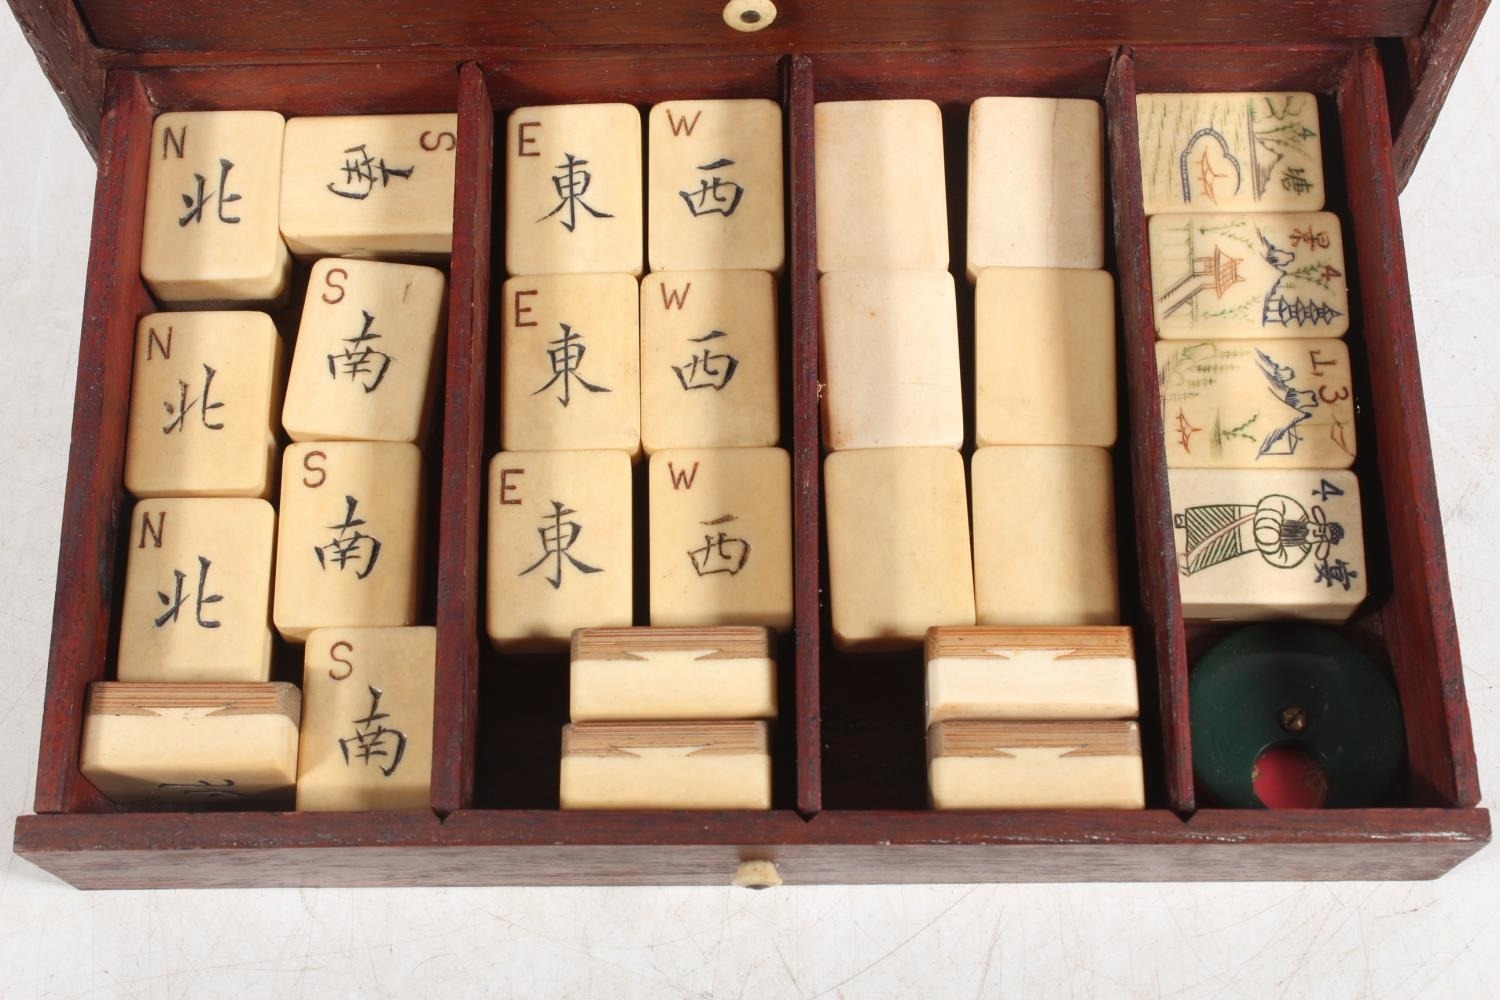 N
北
S
南
N
北
S
南
N
北
S
南
S
南
E
東
W
西
E
東
W
西
E
東
W
西
4
塘
景
4
3
4
宴